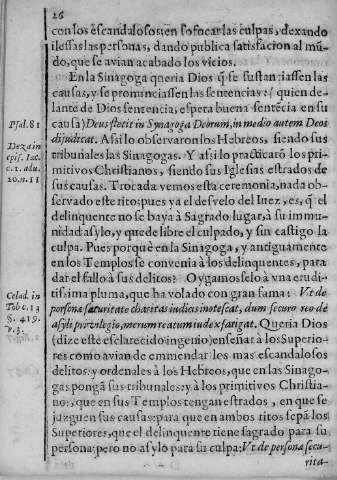 26
con los escandalosos: en sofocar las culpas, dexando
ilessas las personas, dando publica satisfacion al mũ-
do, que se avian acabado los vicios.
En la Sinagoga queria Dios q̃ se sustanciassen las
causas, y se pronunciassen las sentencias: (quien de-
lante de Dios sentencia, espera buena sentẽcia en su
causa) Deus stetit in Synagoga Deorum, in medio autem Deos
dijudicat. Assi lo observaron los Hebreos, siendo sus
tribunales las Sinagogas. Y assi lo practicarõ los pri-
mitivos Christianos, siendo sus Iglesias estrados de
sus causas. Trocada vemos esta ceremonia, nada ob-
servado este rito: pues ya el desvelo del Iuez, es, q̃ el
delinquente no se baya à Sagrado lugar, à su immu-
nidad asylo, y quede libre el culpado, y sin castigo la
culpa. Pues porquè en la Sinagoga, y antiguamente
en los Templos se convenia à los delinquentes, para
dar el fallo à sus delitos? Oygamoselo à vna erudi-
tissima pluma, que ha volado con gran fama: Vt de
personæ securitate charitas iudicis inotescat, dum securo reo de
asyli privilegio, merum reatum iudex fatigat. Queria Dios
(dize este esclarecido ingenio) enseñar à los Superio-
res como avian de emmendar les mas escandalosos
delitos: y ordenales à los Hebreos, que en las Sinago-
gas pongã sus tribunales: y à los primitivos Christia-
nos, que en sus Templos tengan estrados, en que se
juzguen sus causas: para que en ambos ritos sepã los
Superiores, que el delinquente tiene sagrado para su
persona: pero no asylo para su culpa: Vt de personæ secu-
rita-
Psal. 81
Deza in
epis. Iac.
c. 1. adu.
20. n. 11
Celad. in
Tob c. 13
§. 419.
n. 3.